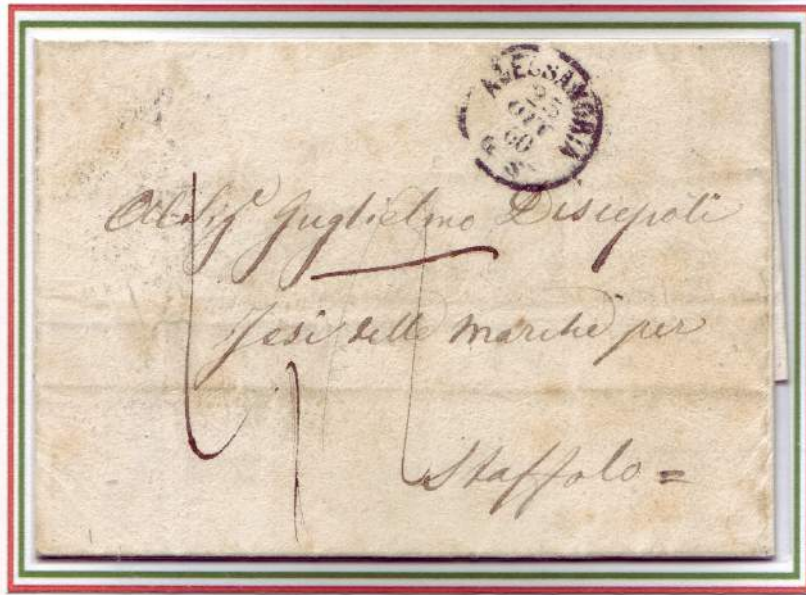 ALESSANDRIA
25
OTT
60
Al Sigr Guglielmo Discepoli
Jesi delle Marche per
Staffolo =